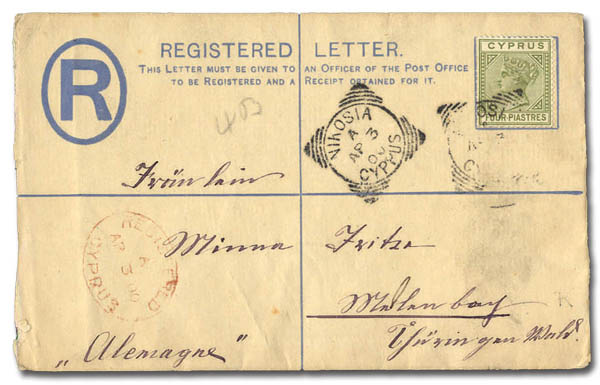 REGISTERED LETTER.
THIS LETTER MUST BE GIVEN TO AN OFFICER OF THE POST OFFICE
TO BE REGISTERED AND A RECEIPT OBTAINED FOR IT.
R
CYPRUS
FOUR-PIASTRES
NIKOSIA
A
AP 3
00
CYPRUS
Fräulein
Minna Fritze
REGISTERED
A
AP 3 00
CYPRUS
Thüringen Wald.
"Alemagne"